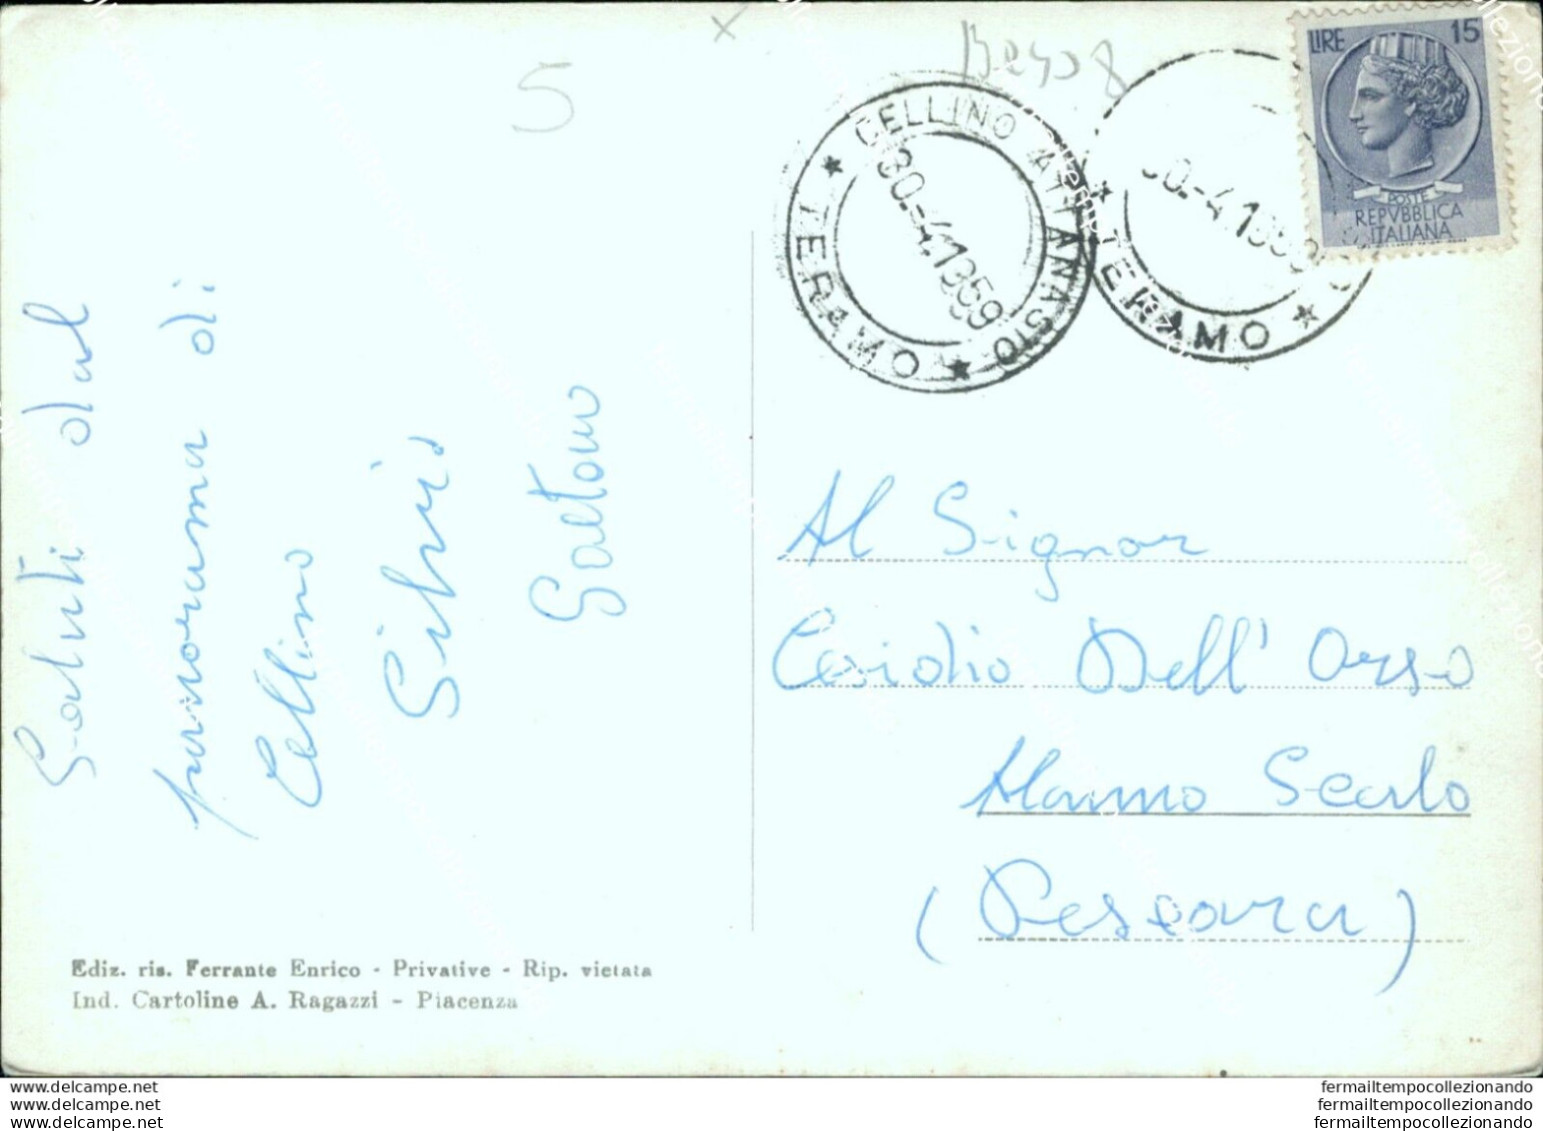 5
LIRE 15
POSTE
REPVBBLICA
ITALIANA
CELLINO ATTANASIO
★ TERAMO ★
30.-4.1959
★ TERAMO ★
Saluti dal
panorama di
Cellino
Silvio
Gaetano
Al Signor
Cesidio Dell' Orso
Alanno Scalo
(Pescara)
Ediz. ris. Ferrante Enrico - Privative - Rip. vietata
Ind. Cartoline A. Ragazzi - Piacenza
www.delcampe.net
www.delcampe.net
www.delcampe.net
fermailtempocollezionando
fermailtempocollezionando
fermailtempocollezionando